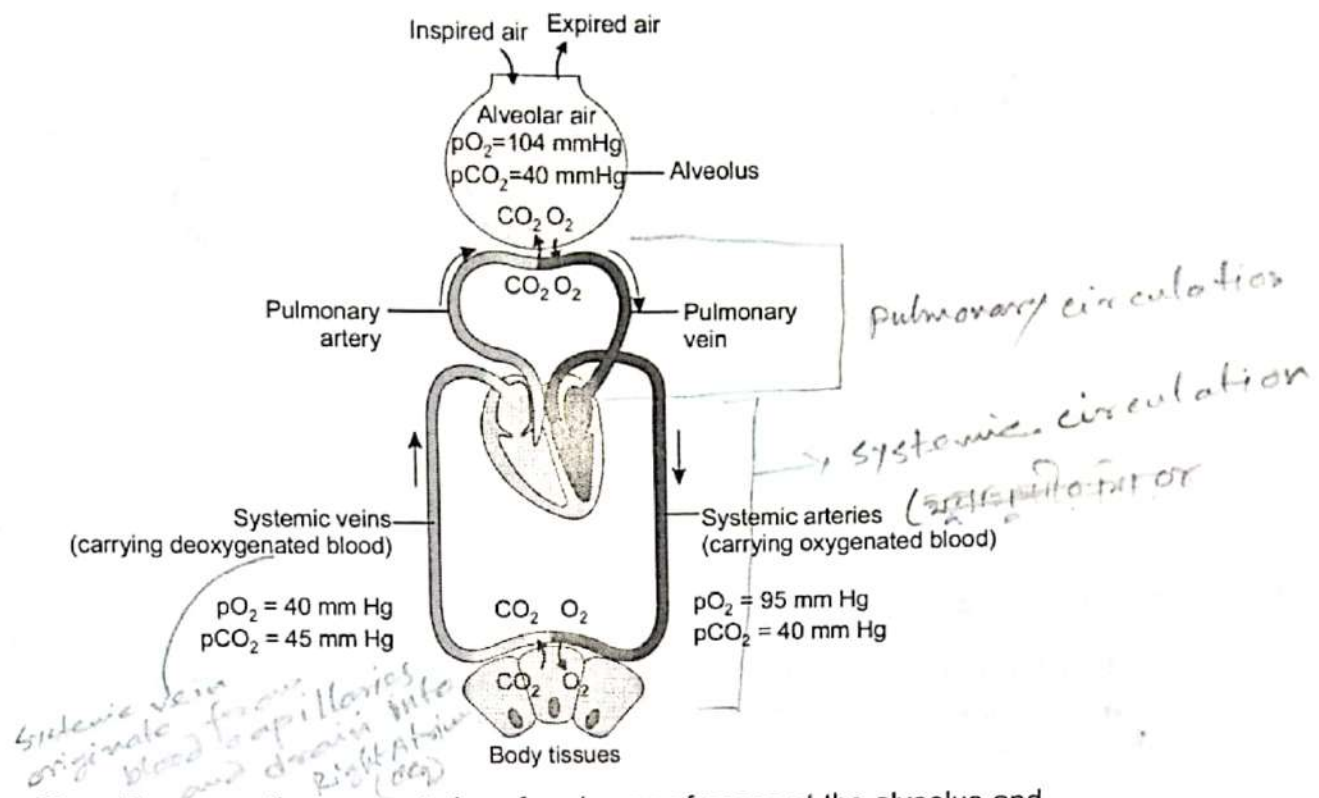 Inspired air
Expired air
Alveolar air
pO₂=104 mmHg
pCO₂=40 mmHg
Alveolus
CO₂ O₂
CO₂ O₂
Pulmonary
artery
Pulmonary
vein
pulmonary circulation
systemic circulation
Systemic veins
(carrying deoxygenated blood)
Systemic arteries
(carrying oxygenated blood)
pO₂ = 40 mm Hg
pCO₂ = 45 mm Hg
CO₂ O₂
pO₂ = 95 mm Hg
pCO₂ = 40 mm Hg
CO₂ O₂
Body tissues
systemic vein
originate from
blood capillaries
and drain into
Right Atrium
the alveolus and